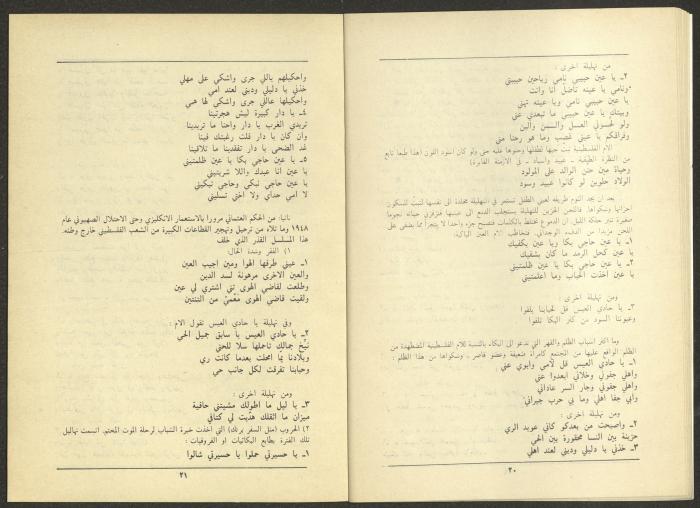 من تهليلة اخرى :
٢ـ يا عين حبيبي نامي رياحين حبيبتي
ونامي يا عينه تاضل أنا وانت
يا عين حبيبي نامن ويا عينه تهني
وبيتك يا عين حبيبي ما تبعدي عني
ولو لحسوني العسل والسمن واللبن
وفراقكم يا عيني غصب وما هو رضا مني
الام الفلسطينية تبث حبها لطفلها وحنوها عليه حتى ولو كان اسود اللون (هذا طبعا تابع
من النظرة الطبقية ـ عبيد واسياد ـ في الازمنة الغابرة)
وحياة عين حنن الوالد على المولود
الولاد حلوين لو كانوا عبيد وسود
بعد ان يجد النوم طريقه لعيني الطفل تستمر في التهليلة مخلدة الى نفسها لتبث للسكون
احزانها وشكواها. فاللحن الحزين للتهليلة يستجلب الدمع الى عينيها فتزفزف
١ـ يا عين حاجي بكا ويا عين بكفيك
يا عين كحل الرمد ما كان بشفيك
٢ـ يا عين حاجي بكا يا عين ظلمتيني
يا عين اخذت الحباب وما اعلمتيني
ومن تهليلة اخرى :
٣ـ يا حادي العيس قل لحبابنا يلفوا
وعيوننا السود من كثر البكا تلفوا
وما اكثر اسباب الظلم والقهر التي تدعو الى البكاء بالنسبة للام الفلسطينية المضطهدة من
الظلم الواقع عليها من المجتمع كامرأة ضعيفة وعضو قاصر ـ وشكواها من هذا الظلم :
١ـ يا حادي العيس قل لامي وابوي عني
واهلي جفوني وخلاني ابعدوا عني
واهلي جفوني وجار السر عاداني
وابي جفا اهلي وما بي حرب جيراني
ومن تهليلة اخرى :
٢ـ واصبحت من بعدكو كاني عويد الري
حزينة بين النسا محقورة بين الحي
٣ـ خذني يا دليلي ودبني لعند اهلي
٢٠
واحكيلهم باللي جرى واشكي على مهلي
خذني يا دليلي ودبني لعند امي
واحكيلها عاللي جرى واشكي لها همي
٤ـ يا دار كبيرة ليش هجرتينا
تريدي الغرب يا دار واحنا ما تريدينا
وان كان يا دار قلت رغبتك فينا
غد الضحى يا دار تفقدينا ما تلاقينا
٥ـ يا عين حاجي بكا يا عين ظلمتيني
يا عين أنا عبدك واللا شريتيني
يا عين حاجي تبكي وحاجي تبكيني
لا امي حداي ولا اختي تسليني
ثانيا: من الحكم العثماني مرورا بالاستعمار الانكليزي وحتى الاحتلال الصهيوني عام
١٩٤٨ وما تلاه من ترحيل وتهجير القطاعات الكبيرة من الشعب الفلسطيني خارج وطنه.
هذا المسلسل القذر الذي خلف
١) الفقر وشدة الحال:
١ـ عيني طرفها الهوا ومين اجيب العين
والعين الاخرى مرهونة لسد الدين
وطلعت لقاضي الهوى تني اشتري لي عين
ولقيت قاضي الهوى مَعْميْ من الثنتين
وفي تهليلة يا حادي العيس تقول الام :
٢ـ يا حادي العيس يا سابق جميل الحي
نيخ جمالك تاحملها سلا للحي
وبلادنا يما امحلت بعدما كانت ري
وحبابنا تفرقت لكل جانب حي
ومن تهليلة اخرى :
٣ـ يا ليل ما اطولك مشيتني حافية
ميزان ما اثقلك هدّيت لي كتافي
٢) الحروب (مثل السفر برلك) التي اخذت خيرة الشباب لرحلة الموت المحتم. اتسمت تهاليل
تلك الفترة بطابع البكائيات او الفروقيات :
١ـ يا حسيرتي حملوا يا حسيرتي شالوا
٢١